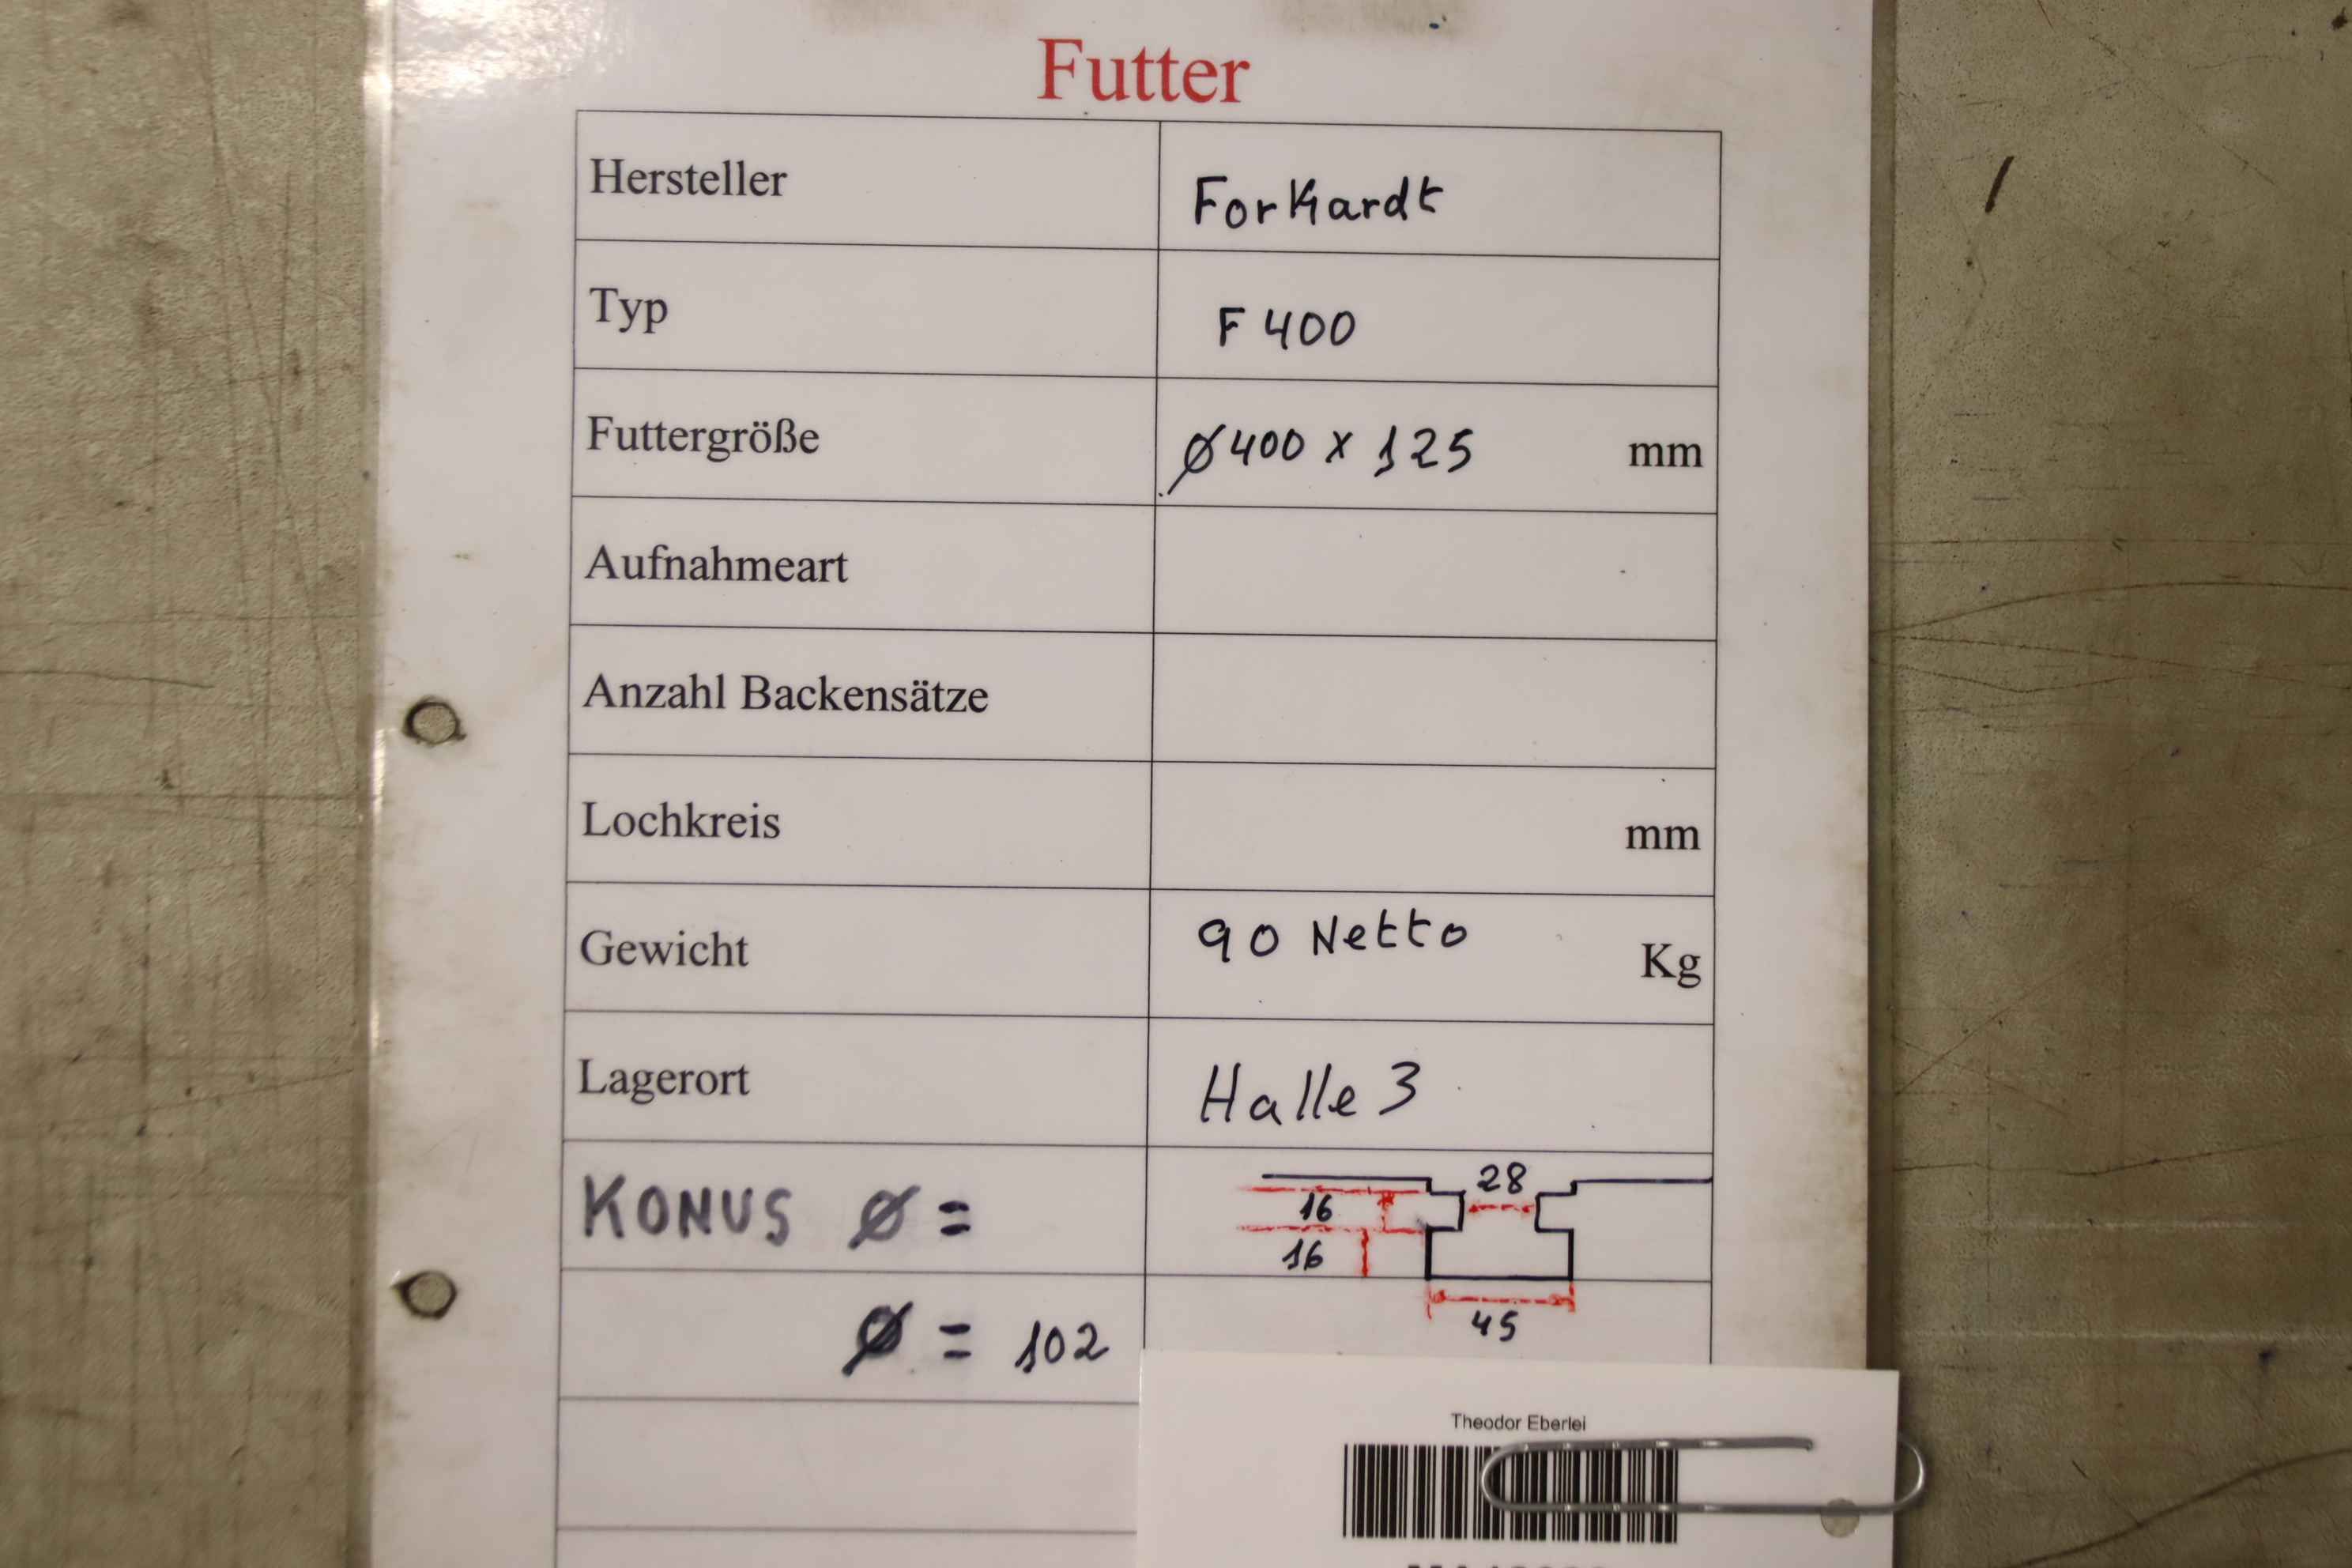 Futter
Hersteller Forkardt
Typ F 400
Futtergröße Ø400 x 125 mm
Aufnahmeart
Anzahl Backensätze
Lochkreis mm
Gewicht 90 Netto Kg
Lagerort Halle 3
KONUS Ø =
28
16
16
45
Ø = 102
Theodor Eberlei